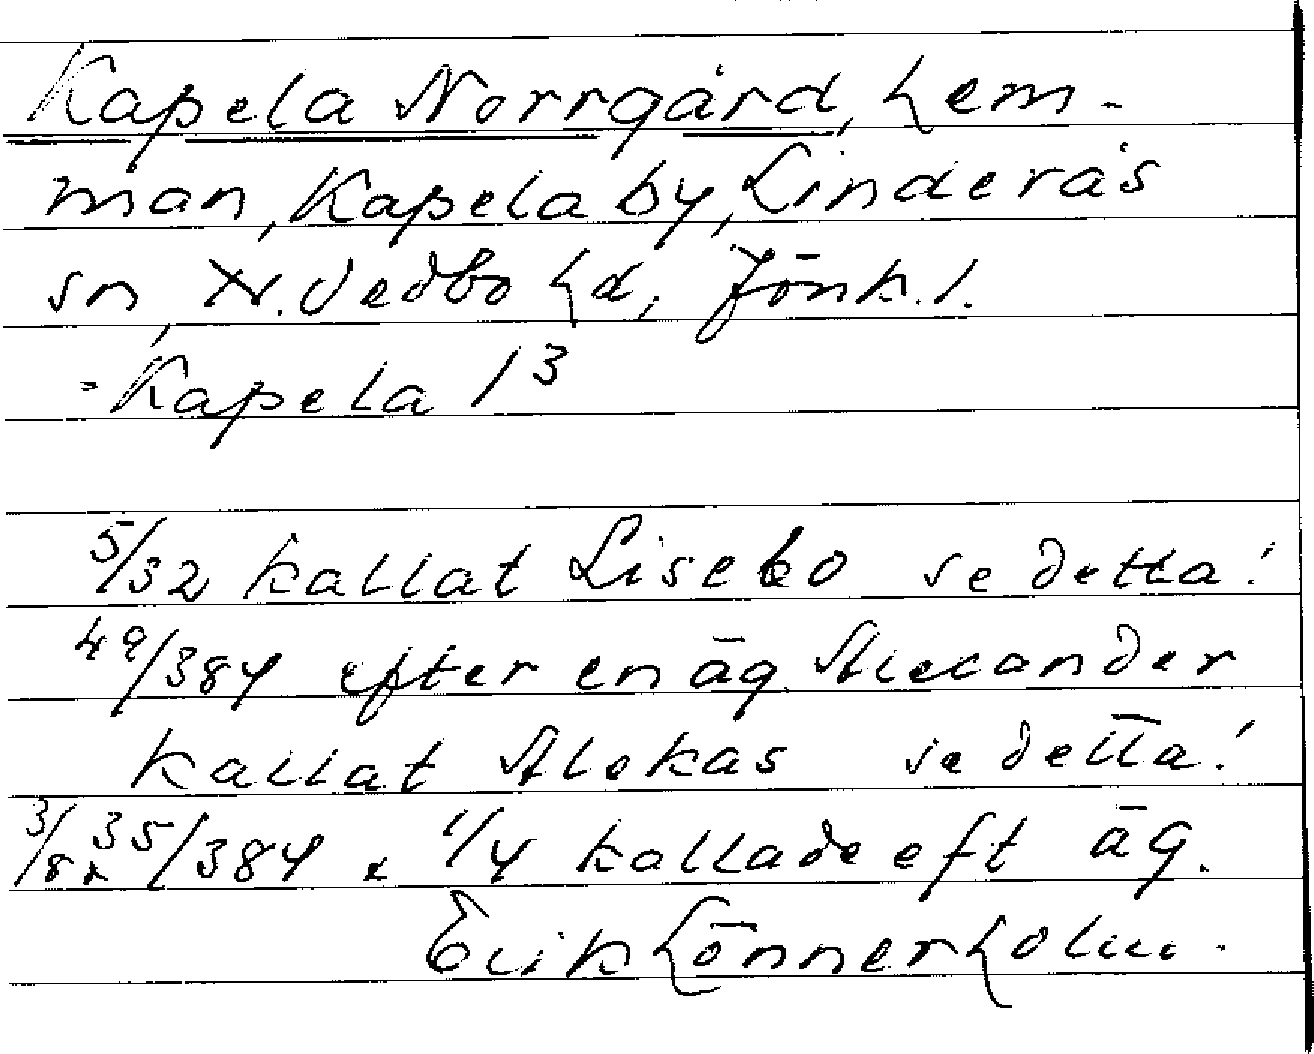 Kapela Norrgård, hem-
man, Kapela by, Linderås
sn, N. Vedbo hd, Jönk. l.
= Kapela 1³
5/32 kallat Lisebo se detta!
49/384 efter en äg. Alexander
kallat Alekas se detta!
35/384 1/4 kallade eft äg.
Erik Lönnerholm.